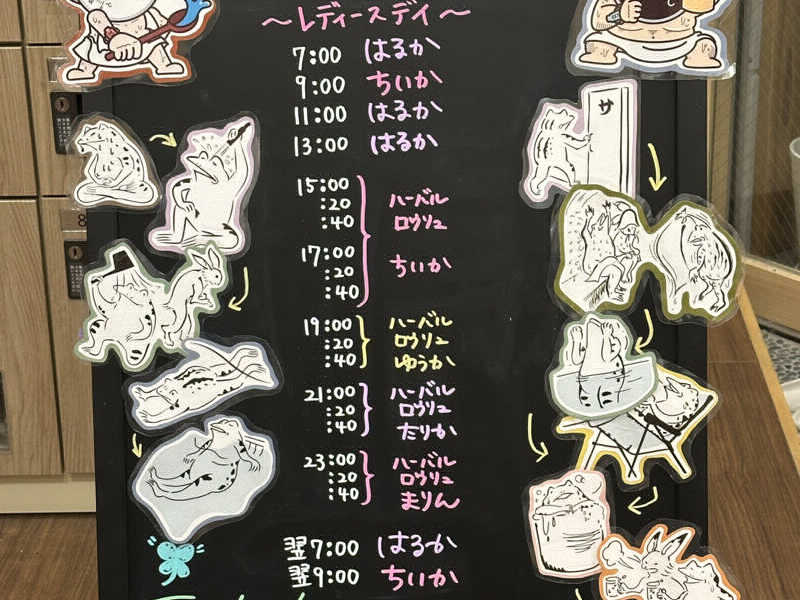 〜レディースデイ〜
7:00 はるか
9:00 ちいか
11:00 はるか
13:00 はるか
15:00
:20 ハーバル
:40 ロウリュ
17:00
:20 ちいか
:40
19:00 ハーバル
:20 ロウリュ
:40 ゆうか
21:00 ハーバル
:20 ロウリュ
:40 たりか
23:00 ハーバル
:20 ロウリュ
:40 まりん
翌7:00 はるか
翌9:00 ちいか
サ
8